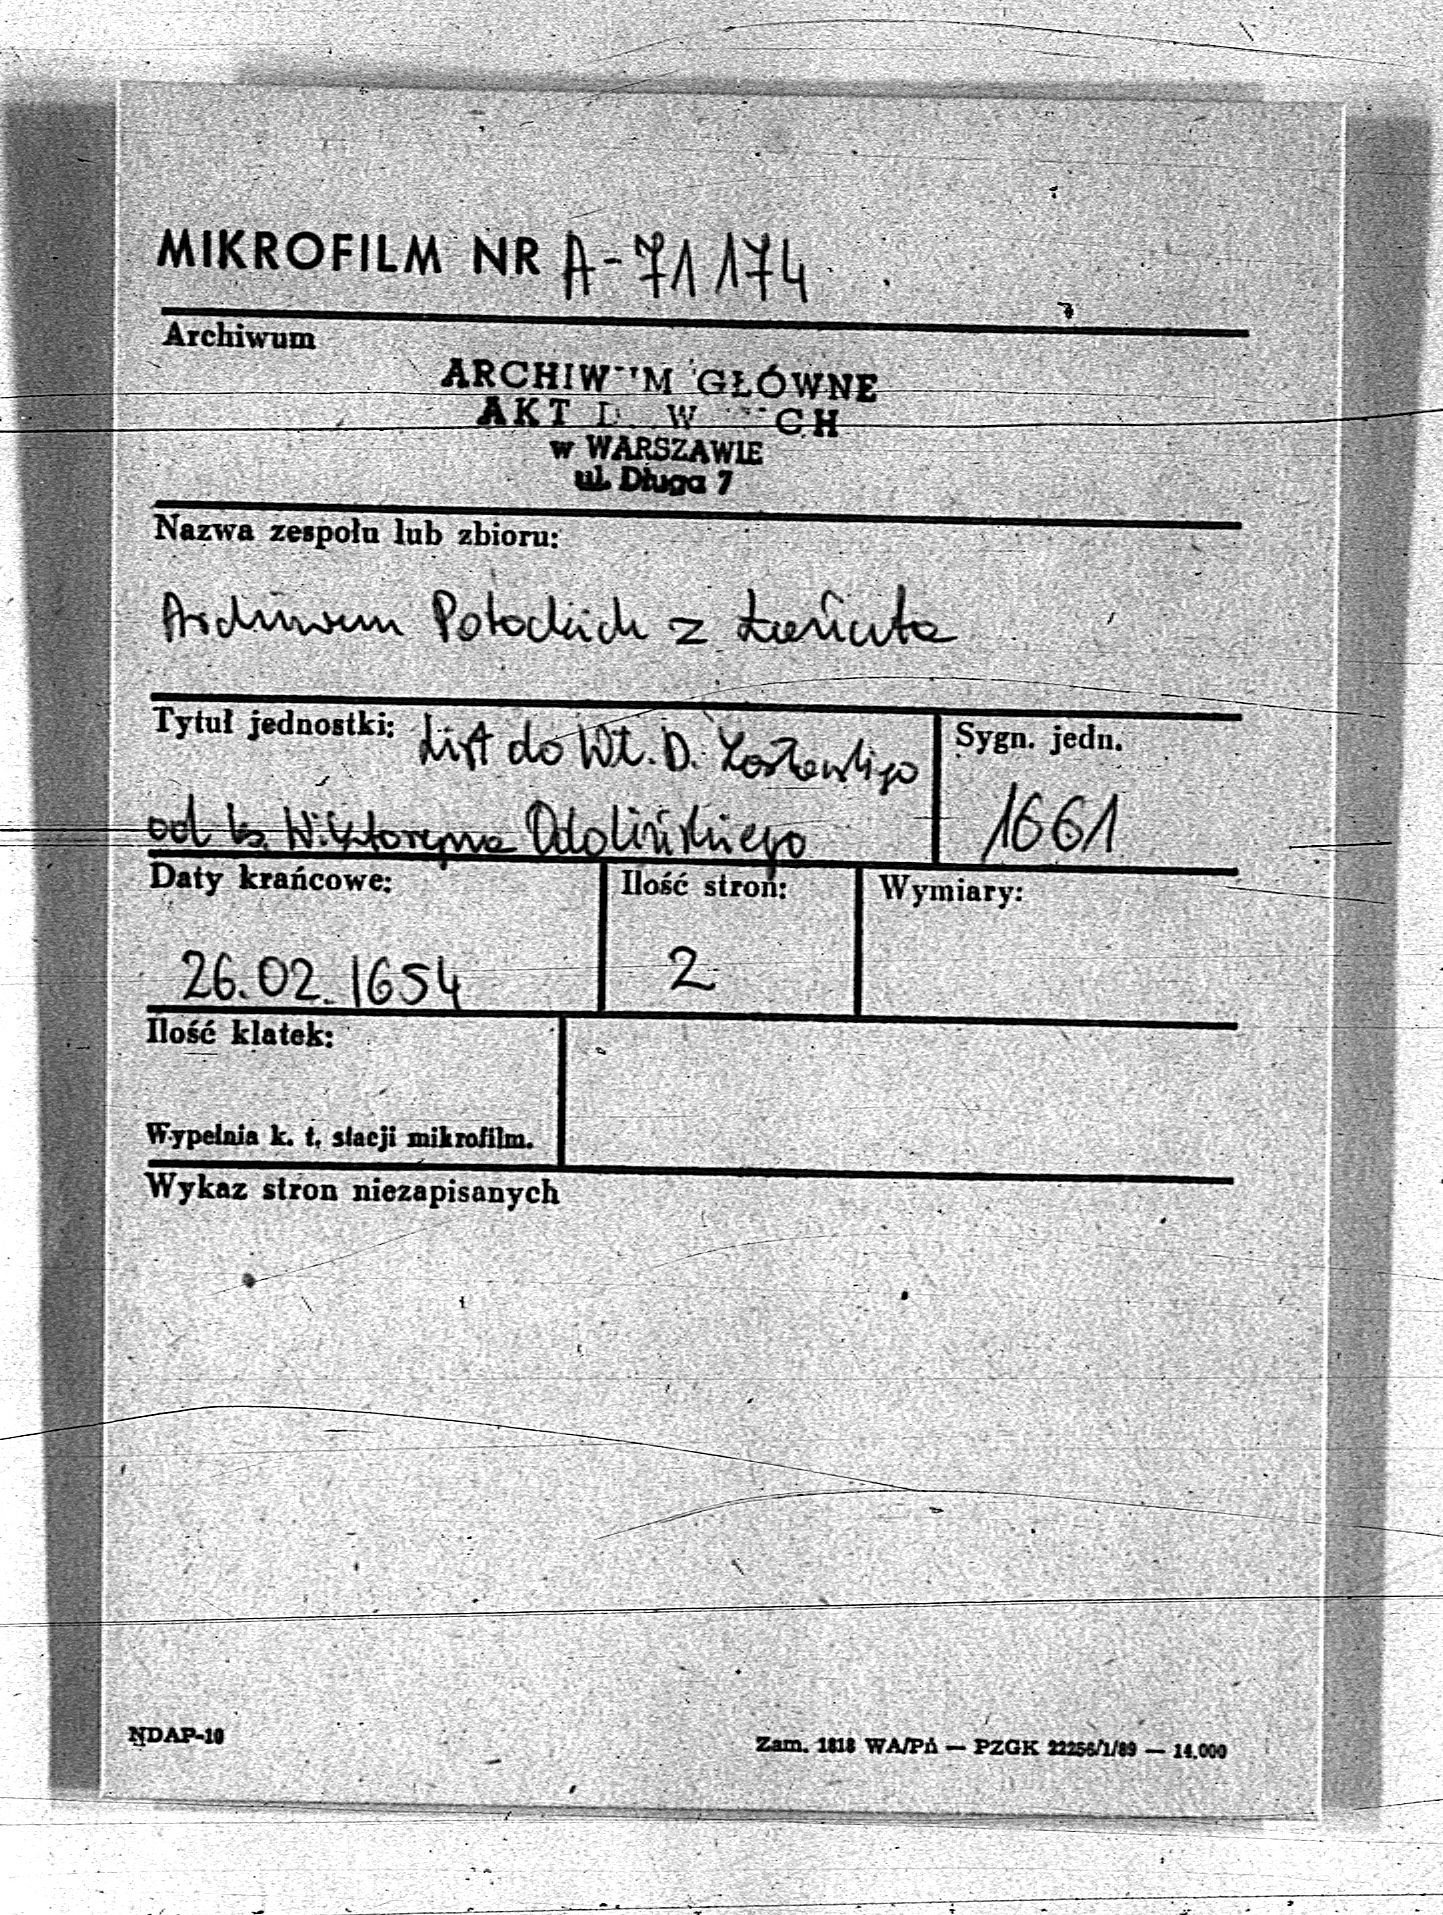 MIKROFILM NR A-71174
Archiwum
ARCHIWUM GŁÓWNE
AKT D W CH
w WARSZAWIE
ul. Długa 7
Nazwa zespołu lub zbioru:
Archiwum Potockich z Łańcuta
Tytuł jednostki: List do Wł. D.
od ks. Wiktoryna Odolińskiego
Sygn. jedn.
1661
Daty krańcowe:
26.02.1654
Ilość stron:
2
Wymiary:
Ilość klatek:
Wypełnia k. t. stacji mikrofilm.
Wykaz stron niezapisanych
NDAP-10
Zam. 1818 WA/Pń — PZGK 22256/1/89 — 14.000